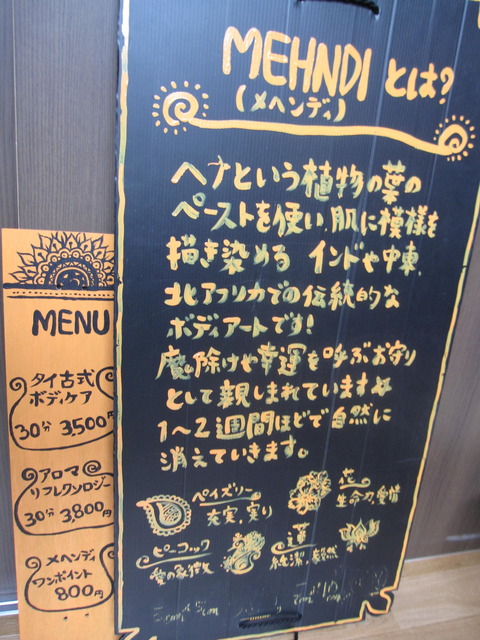 MEHNDI とは?
(メヘンディ)
ヘナという植物の葉の
ペーストを使い、肌に模様を
描き染める インドや中東、
北アフリカでの伝統的な
ボディアートです!
魔除けや幸運を呼ぶお守り
として親しまれています
1〜2週間ほどで自然に
消えていきます。
ペイズリー
充実,実り
花
生命力,愛情
ピーコック
愛の象徴
蓮
純潔,毅然
MENU
タイ古式
ボディケア
30分 3,500円
アロマ
リフレクソロジー
30分 3,800円
メヘンディ
ワンポイント
800円